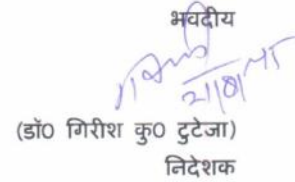 भवदीय
(डॉ0 गिरीश कु0 टुटेजा)
निदेशक